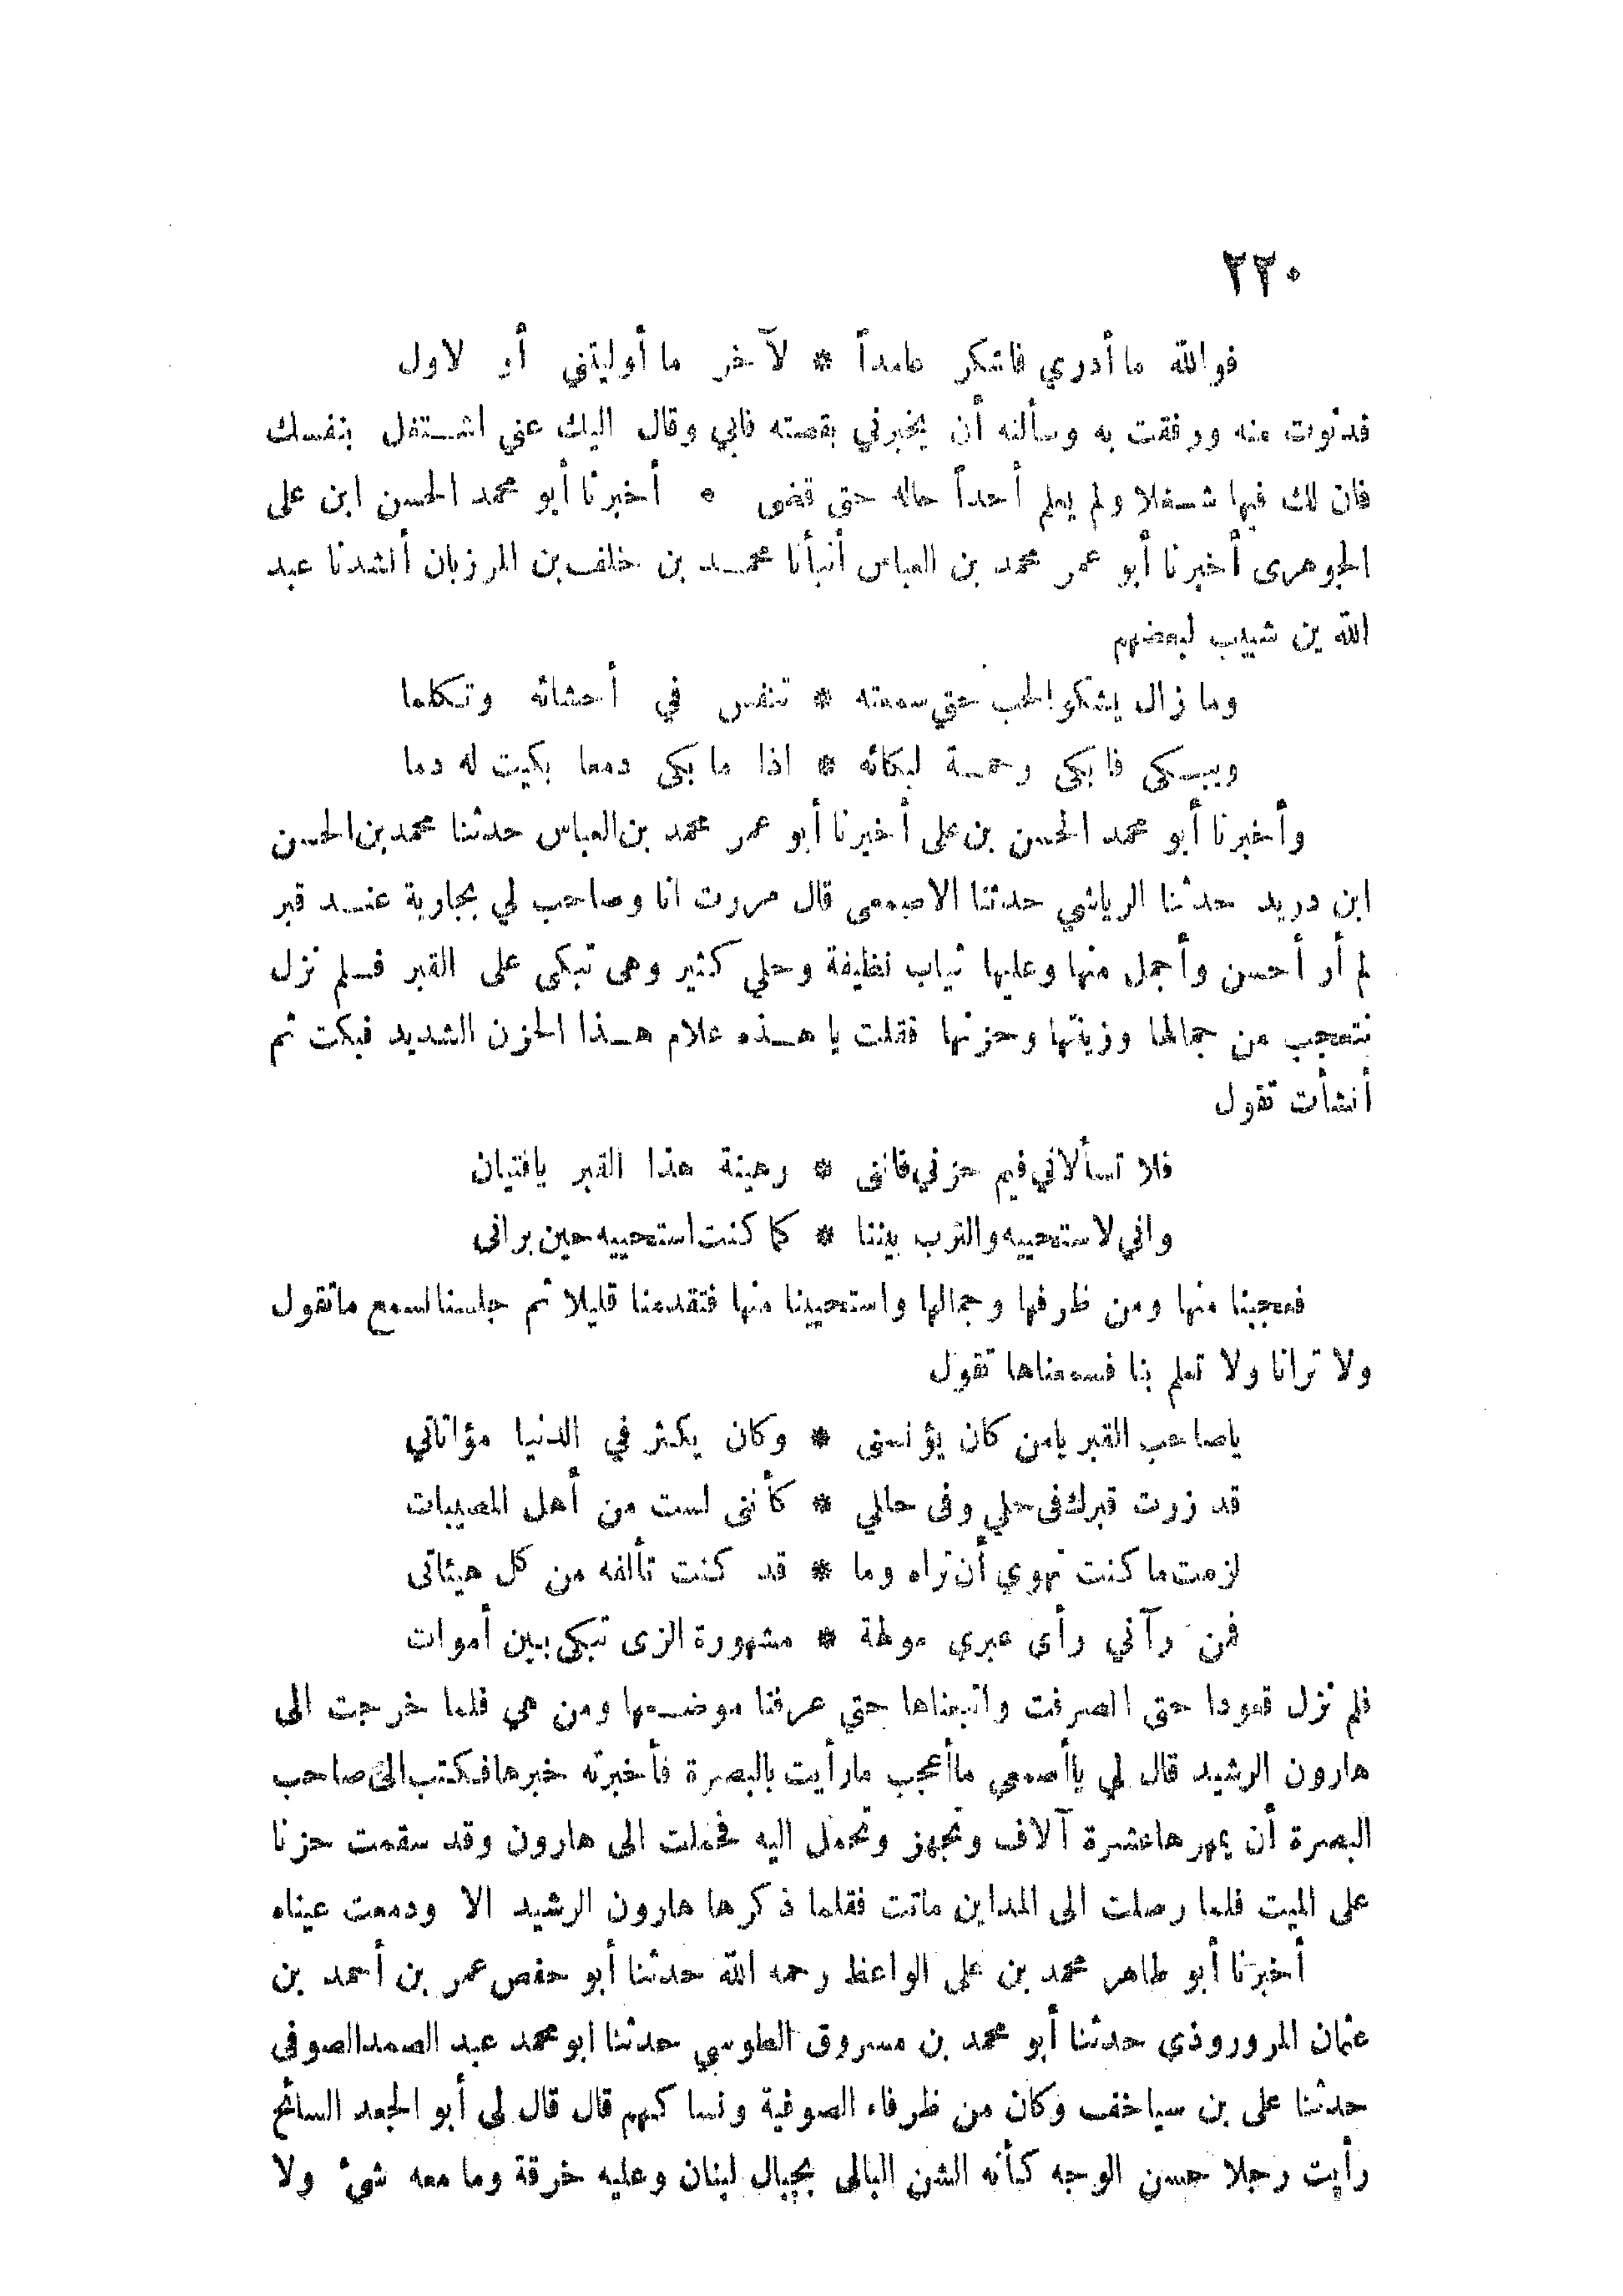 ٢٢٠
فوالله ما أدري فاشكر عامداً * لآخر ما أوليتني أو لاول
فدنوت منه ورفقت به وسألته أن يخبرني بقصته فابي وقال اليك عني اشتغل بنفسك
فان لك فيها شغلا ولم يعلم أحداً حاله حتى قضى ٥ أخبرنا أبو محمد الحسن ابن على
الجوهرى أخبرنا أبو عمر محمد بن العباس أنبأنا محمد بن خلف بن المرزبان أنشدنا عبد
الله بن شبيب لبعضهم
وما زال يشكو الحب حتى سمعته * تنفس في أحشائه وتكلما
ويبكى فابكى رحمة لبكائه * اذا ما بكى دمعا بكيت له دما
وأخبرنا أبو محمد الحسن بن على أخبرنا أبو عمر محمد بن العباس حدثنا محمد بن الحسن
ابن دريد حدثنا الرياشي حدثنا الاصمعى قال مررت انا وصاحب لي بجارية عند قبر
لم أر أحسن وأجمل منها وعليها ثياب نظيفة وحلي كثير وهى تبكى على القبر فلم نزل
نتعجب من جمالها وزينتها وحزنها فقلت يا هذه علام هذا الحزن الشديد فبكت ثم
أنشأت تقول
فلا تسألاني فيم حزني فانني * رهينة هذا القبر يافتيان
واني لاستحييه والترب بيننا * كما كنت استحييه حين يرانى
فعجبنا منها ومن ظرفها وجمالها واستحيينا منها فتقدمنا قليلا ثم جلسنا نسمع ماتقول
ولا ترانا ولا تعلم بنا فسمعناها تقول
ياصاحب القبر يامن كان يؤنسنى * وكان يكثر في الدنيا مؤاتاتي
قد زرت قبرك فى حلي وفى حللي * كأننى لست من أهل المصيبات
لزمت ما كنت تهوي أن تراه وما * قد كنت تألفه من كل هيئاتى
فمن رآني رأى عبري مولهة * مشهورة الزى تبكى بين أموات
فلم نزل قعودا حتى انصرفت واتبعناها حتي عرفنا موضعها ومن هي فلما خرجت الى
هارون الرشيد قال لي ياأصمعي ماأعجب مارأيت بالبصرة فأخبرته خبرها فكتب الى صاحب
البصرة أن يمهرها عشرة آلاف وتجهز وتحمل اليه فحملت الى هارون وقد سقمت حزنا
على الميت فلما وصلت الى المداين ماتت فقلما ذكرها هارون الرشيد الا ودمعت عيناه
أخبرنا أبو طاهر محمد بن على الواعظ رحمه الله حدثنا أبو حفص عمر بن أحمد بن
عثمان المروروذى حدثنا أبو محمد بن مسروق الطوسي حدثنا ابو محمد عبد الصمد الصوفى
حدثنا على بن سياخف وكان من ظرفاء الصوفية ونسا كهم قال قال لى أبو الجعد السائح
رأيت رجلا حسن الوجه كأنه الشن البالى بجبال لبنان وعليه خرقة وما معه شئ ولا